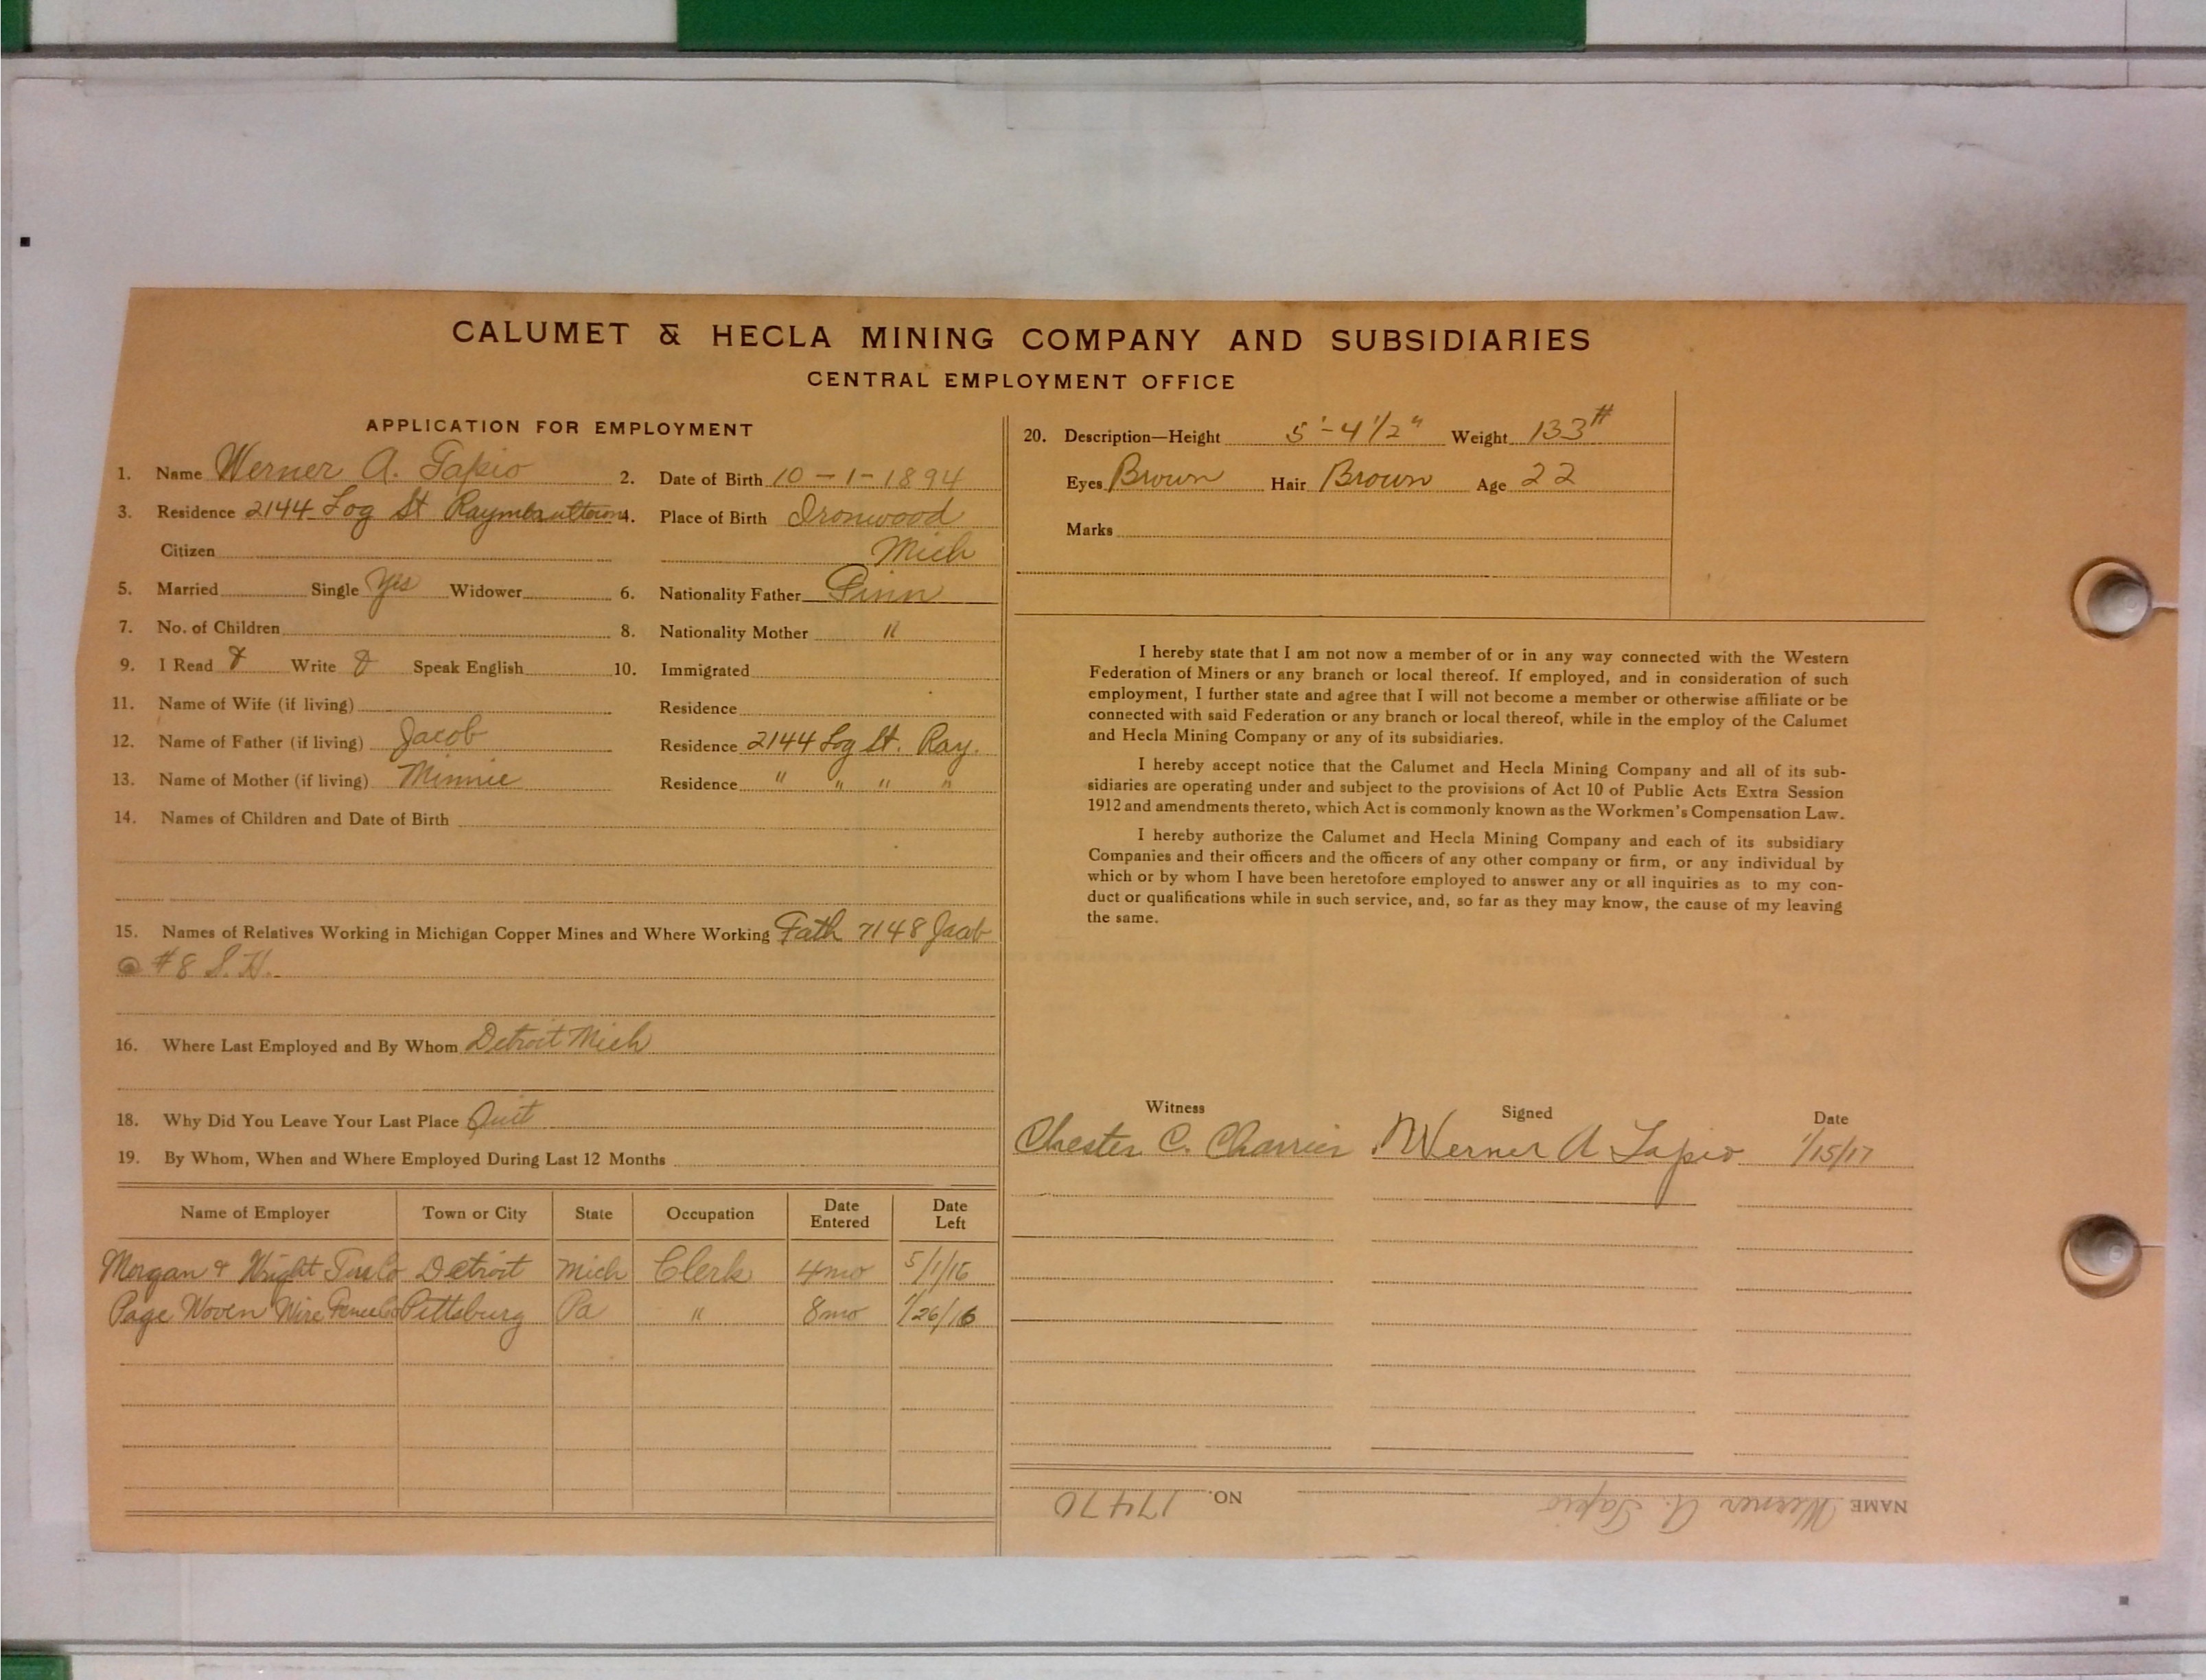 CALUMET & HECLA MINING COMPANY AND SUBSIDIARIES
CENTRAL EMPLOYMENT OFFICE
APPLICATION FOR EMPLOYMENT
1. Name Werner A. Tapio 2. Date of Birth 10-1-1894
3. Residence 2144 Log St Raymbaultown 4. Place of Birth Ironwood
Citizen Mich
5. Married Single Yes Widower 6. Nationality Father Finn
7. No. of Children 8. Nationality Mother "
9. I Read Write Speak English 10. Immigrated
11. Name of Wife (if living) Residence
12. Name of Father (if living) Jacob Residence 2144 Log St. Ray.
13. Name of Mother (if living) Minnie Residence " " " "
14. Names of Children and Date of Birth
15. Names of Relatives Working in Michigan Copper Mines and Where Working Fath 7148 Jacob
@ #8 S. H.
16. Where Last Employed and By Whom Detroit Mich
18. Why Did You Leave Your Last Place Quit
19. By Whom, When and Where Employed During Last 12 Months
Name of Employer Town or City State Occupation Date Entered Date Left
Morgan & Wright Detroit Mich Clerk 4mo 5/1/16
Page Woven Wire Fence Co Pittsburg Pa " 8mo 1/26/16
20. Description—Height 5'-4 1/2" Weight 133#
Eyes Brown Hair Brown Age 22
Marks
I hereby state that I am not now a member of or in any way connected with the Western
Federation of Miners or any branch or local thereof. If employed, and in consideration of such
employment, I further state and agree that I will not become a member or otherwise affiliate or be
connected with said Federation or any branch or local thereof, while in the employ of the Calumet
and Hecla Mining Company or any of its subsidiaries.
I hereby accept notice that the Calumet and Hecla Mining Company and all of its sub-
sidiaries are operating under and subject to the provisions of Act 10 of Public Acts Extra Session
1912 and amendments thereto, which Act is commonly known as the Workmen's Compensation Law.
I hereby authorize the Calumet and Hecla Mining Company and each of its subsidiary
Companies and their officers and the officers of any other company or firm, or any individual by
which or by whom I have been heretofore employed to answer any or all inquiries as to my con-
duct or qualifications while in such service, and, so far as they may know, the cause of my leaving
the same.
Witness Signed Date
Chester C. Charrier Werner A Tapio 1/15/17
NAME Werner A. Tapio NO. 17470